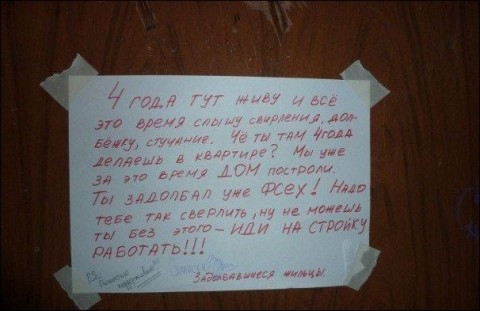 4 ГОДА ТУТ ЖИВУ И ВСЁ
ЭТО ВРЕМЯ СЛЫШУ СВИРЛЕНИЯ, ДОЛ-
БЁЖКУ, СТУЧАНИЕ. ЧЁ ТЫ ТАМ 4 ГОДА
ДЕЛАЕШЬ В КВАРТИРЕ? МЫ УЖЕ
ЗА ЭТО ВРЕМЯ ДОМ ПОСТРОЛИ.
ТЫ ЗАДОЛБАЛ УЖЕ ФСЕХ! НАДО
ТЕБЕ ТАК СВЕРЛИТЬ, НУ НЕ МОЖЕШЬ
ТЫ БЕЗ ЭТОГО – ИДИ НА СТРОЙКУ
РАБОТАТЬ!!!
ЗАДОЛБАВШИЕСЯ ЖИЛЬЦЫ.